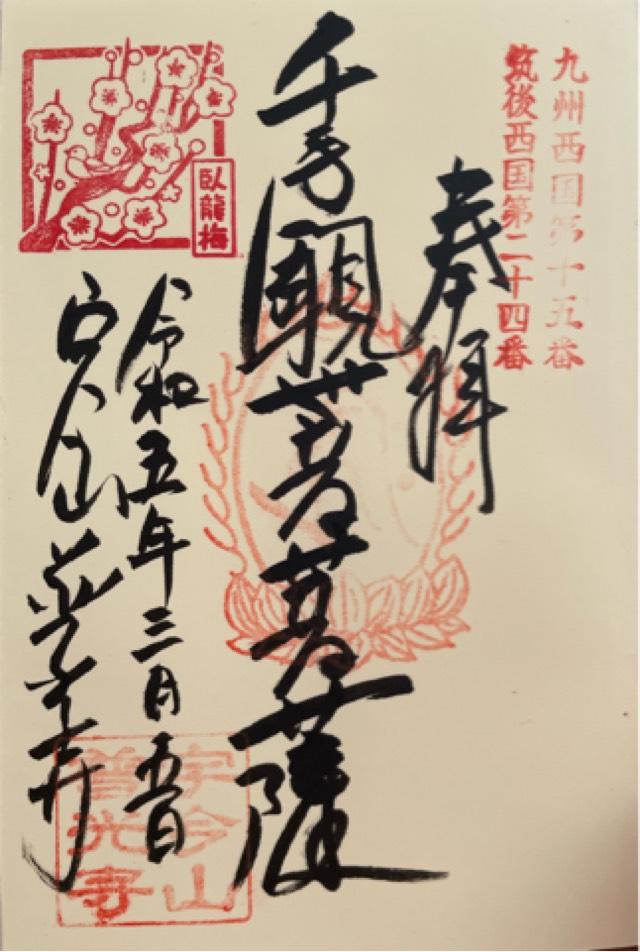 九州西国第十五番
筑後西国第二十四番
奉拝
千手觀世音菩薩
臥龍梅
令和五年三月五日
宇今山普光寺
宇今山
普光寺